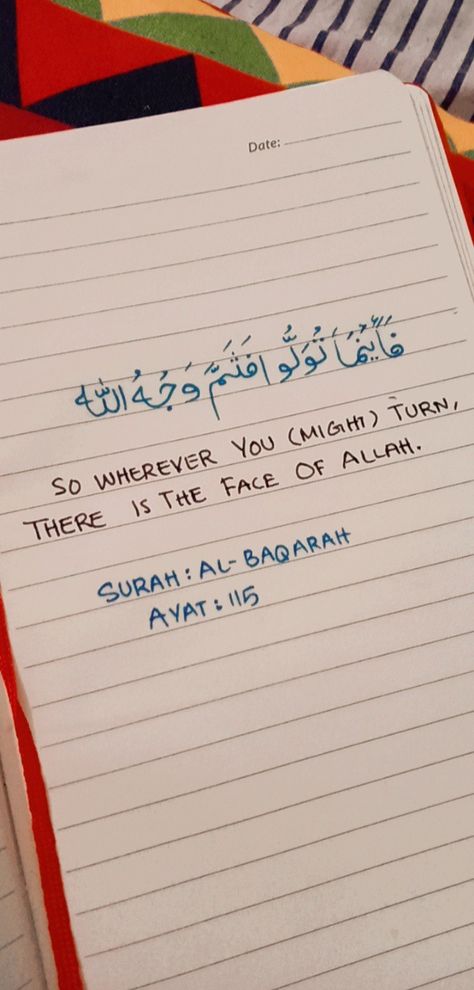 Date:
فَأَيْنَمَا تُوَلُّوا فَثَمَّ وَجْهُ اللّٰه
SO WHEREVER YOU (MIGHT) TURN,
THERE IS THE FACE OF ALLAH.
SURAH: AL-BAQARAH
AYAT: 115